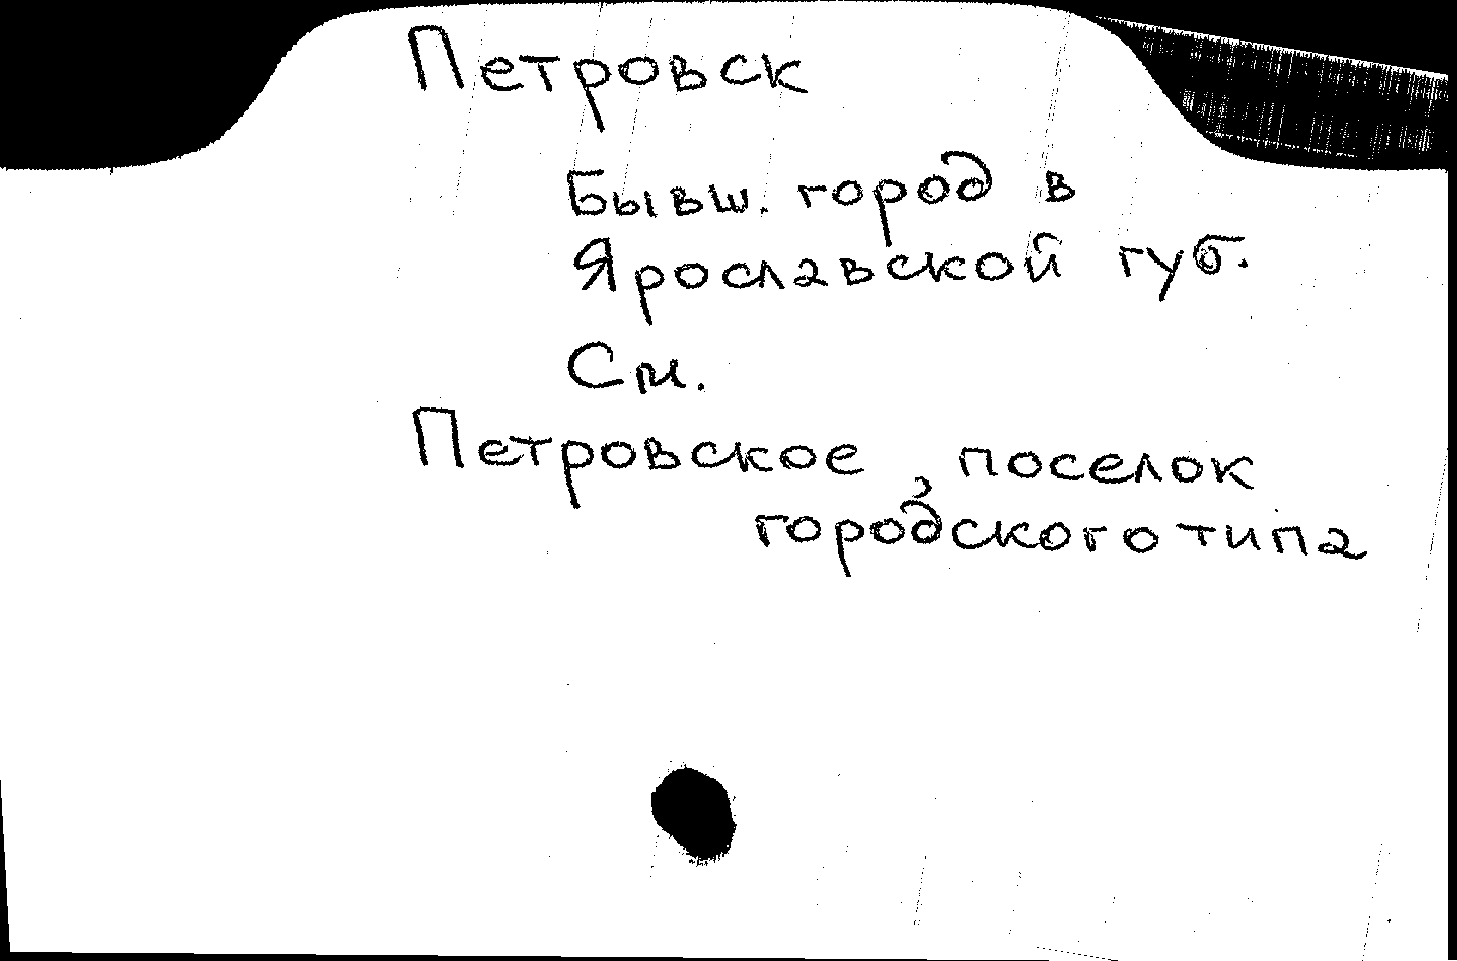 Петровск
Бывш. город в
Ярославской губ.
См.
Петровское, поселок
городского типа